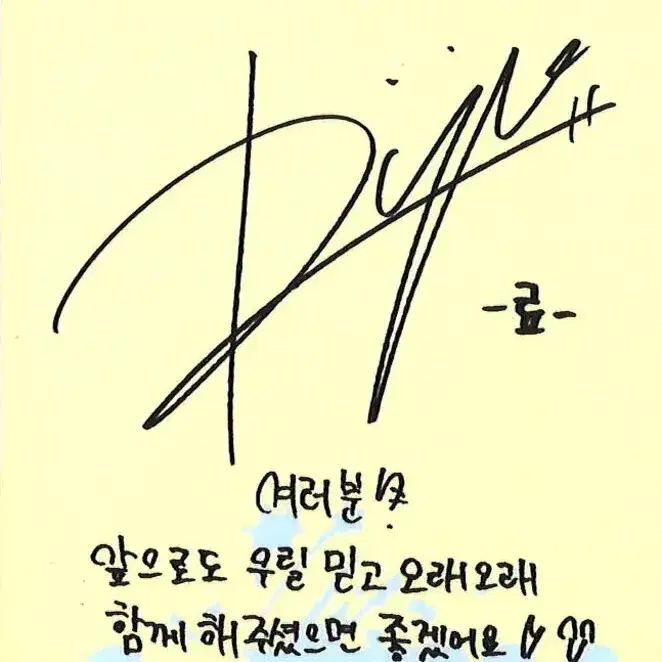 -료-
여러분
앞으로도 우릴 믿고 오래오래
함께 해주셨으면 좋겠어요